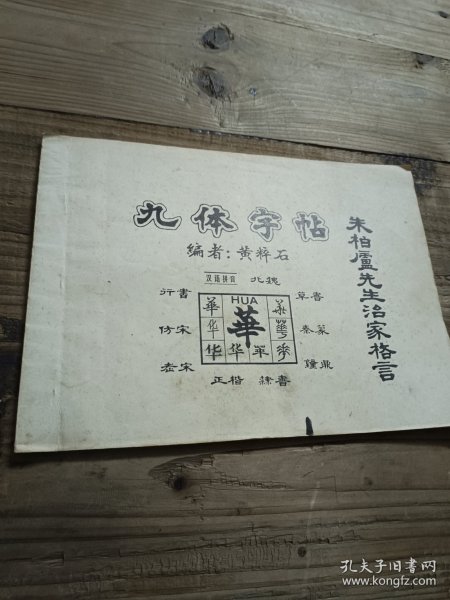 九体字帖
编者：黄粹石
朱柏廬先生治家格言
汉语拼音
北魏
行書
草書
仿宋
秦篆
老宋
鐘鼎
正楷
隸書
HUA
華
孔夫子旧书网
www.kongfz.com